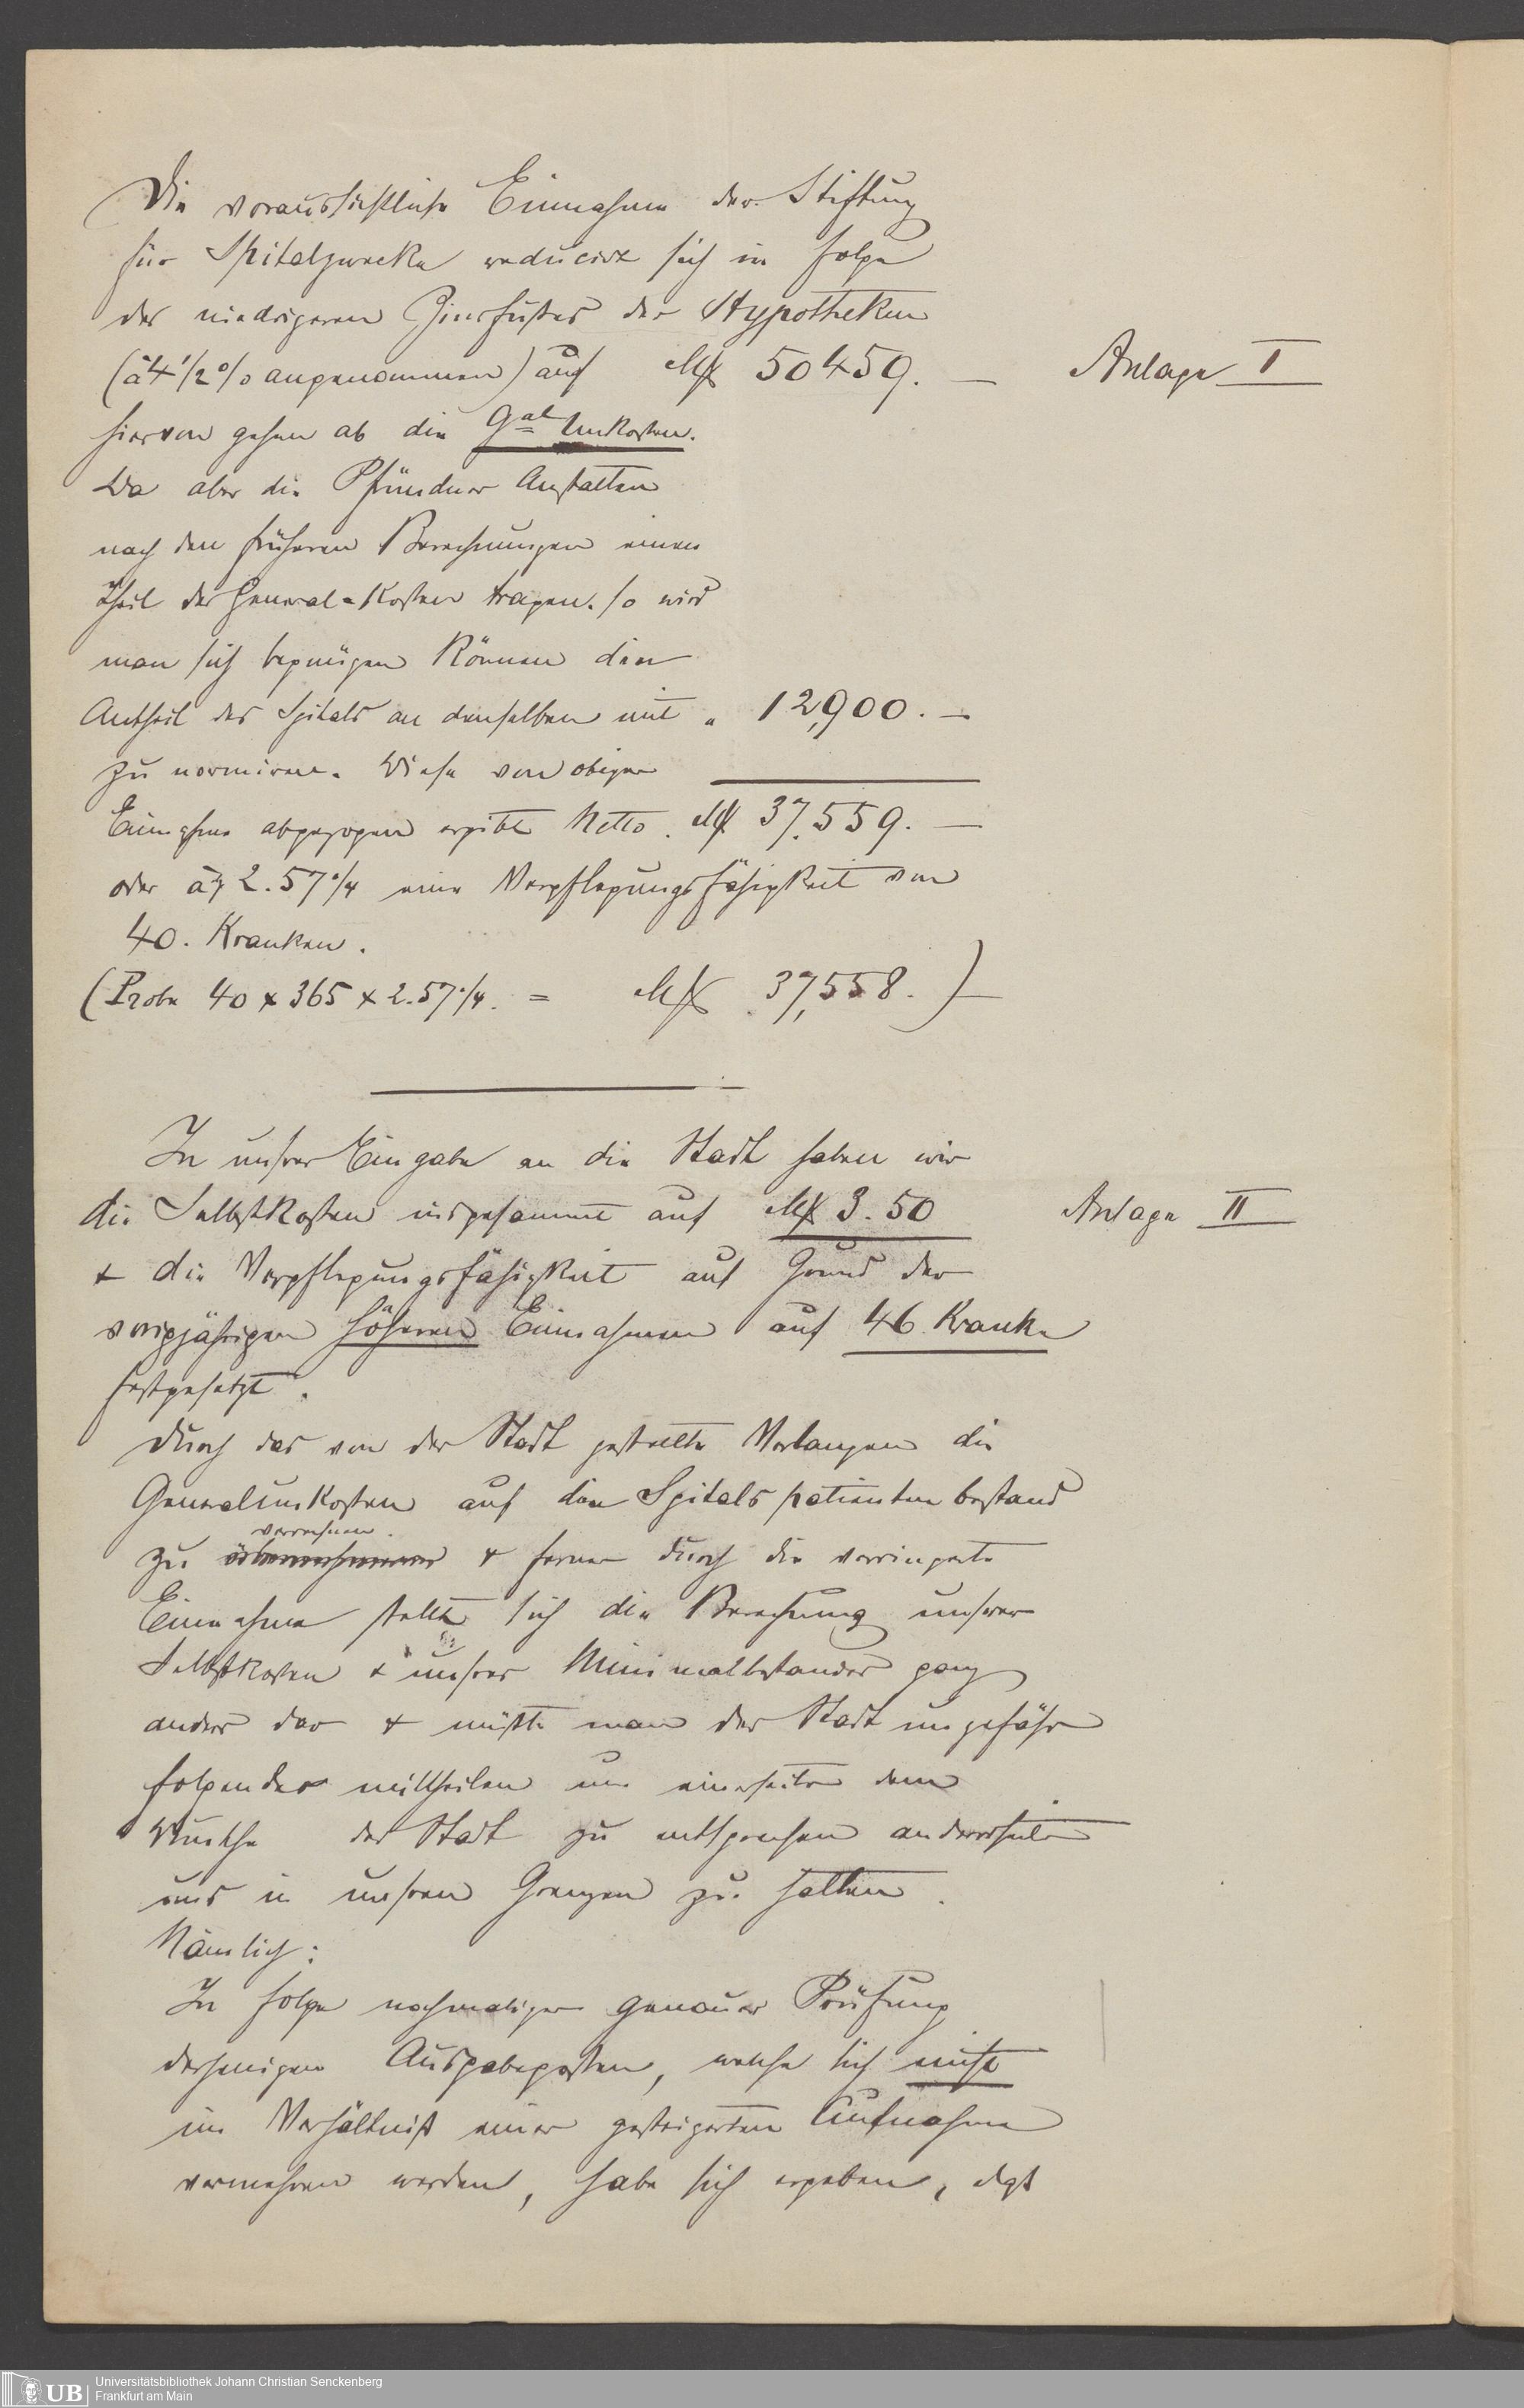 Die voraussichtliche Einnahme der Stiftung
für Spitalzwecke reducirt sich in Folge
des niedrigeren Zinsfußes der Hypotheken
(à 4 1/2 % angenommen) auf M 50459. — Anlage I
hiervon gehen ab die Gal Unkosten.
Da aber die Pfründner Anstalten
nach den früheren Berechnungen einen
Theil der General=Kosten tragen, so wird
man sich begnügen können den
Antheil des Spitals an denselben mit " 12,900. —
zu normiren. Diese von obiger
Einnahme abgezogen ergibt Netto. M 37,559. —
oder à 2.57 1/4 eine Verpflegungsfähigkeit von
40. Kranken.
(Probe 40 x 365 x 2.57 1/4. = M 37,558. —)
In unsrer Eingabe an die Stadt haben wir
die Selbstkosten insgesammt auf M 3.50 Anlage II
& die Verpflegungsfähigkeit auf Grund der
vorigjährigen höheren Einnahmen auf 46 Kranke
festgesetzt.
Durch das von der Stadt gestellte Verlangen die
Generalunkosten auf den Spitals patienten bestand
verrechnen.
zu & ferner durch die verringerte
Einnahme stellt sich die Berechnung unsrer
Selbstkosten & unsres Minimalbestandes ganz
anders dar & müßte man der Stadt ungefähr
folgendes mittheilen um einerseits dem
Wunsche der Stadt zu entsprechen andererseits
uns in unsren Grenzen zu halten.
Nämlich:
In Folge nochmaliger genauer Prüfung
derjenigen Ausgabeposten, welche sich nicht
im Verhältniß einer gesteigerten Aufnahme
vermehren werden, habe sich ergeben, daß
UB Universitätsbibliothek Johann Christian Senckenberg
Frankfurt am Main